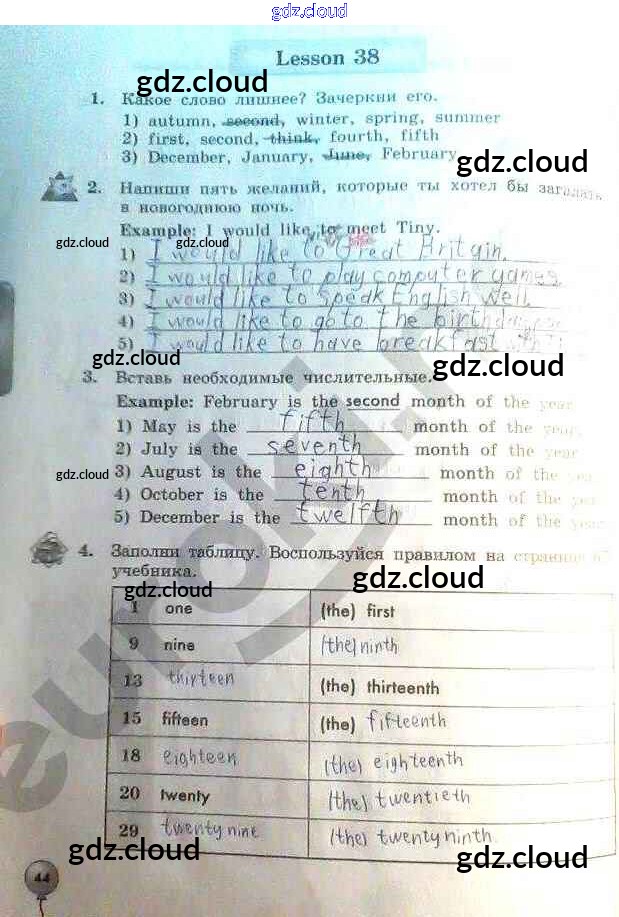 gdz.cloud
Lesson 38
gdz.cloud
1. Какое слово лишнее? Зачеркни его.
1) autumn, second, winter, spring, summer
2) first, second, think, fourth, fifth
3) December, January, June, February
gdz.cloud
2. Напиши пять желаний, которые ты хотел бы загадать
в новогоднюю ночь.
Example: I would like to meet Tiny.
gdz.cloud gdz.cloud
1) I would like to Great Britain.
2) I would like to play computer games
3) I would like to speak English well.
4) I would like to go to the
5) I would like to have breakfast
gdz.cloud gdz.cloud
3. Вставь необходимые числительные.
Example: February is the second month of the year
1) May is the fifth month of the year.
2) July is the seventh month of the year
gdz.cloud
3) August is the eighth month of the year
4) October is the tenth month of the year
5) December is the twelfth month of the year
4. Заполни таблицу. Воспользуйся правилом на странице
учебника.
gdz.cloud gdz.cloud
1 one (the) first
9 nine (the) ninth
13 thirteen (the) thirteenth
15 fifteen (the) fifteenth
18 eighteen (the) eighteenth
20 twenty (the) twentieth
29 twenty nine (the) twenty ninth
gdz.cloud gdz.cloud
44
euroki